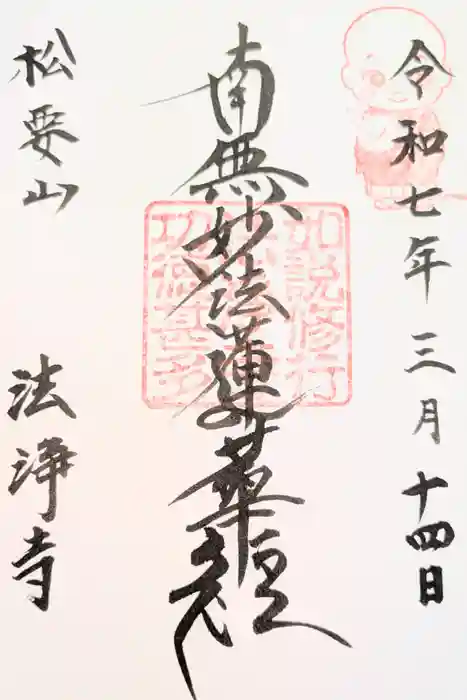 令和七年 三月 十四日
南無妙法蓮華経
如説修行
功徳甚多
松要山 法浄寺